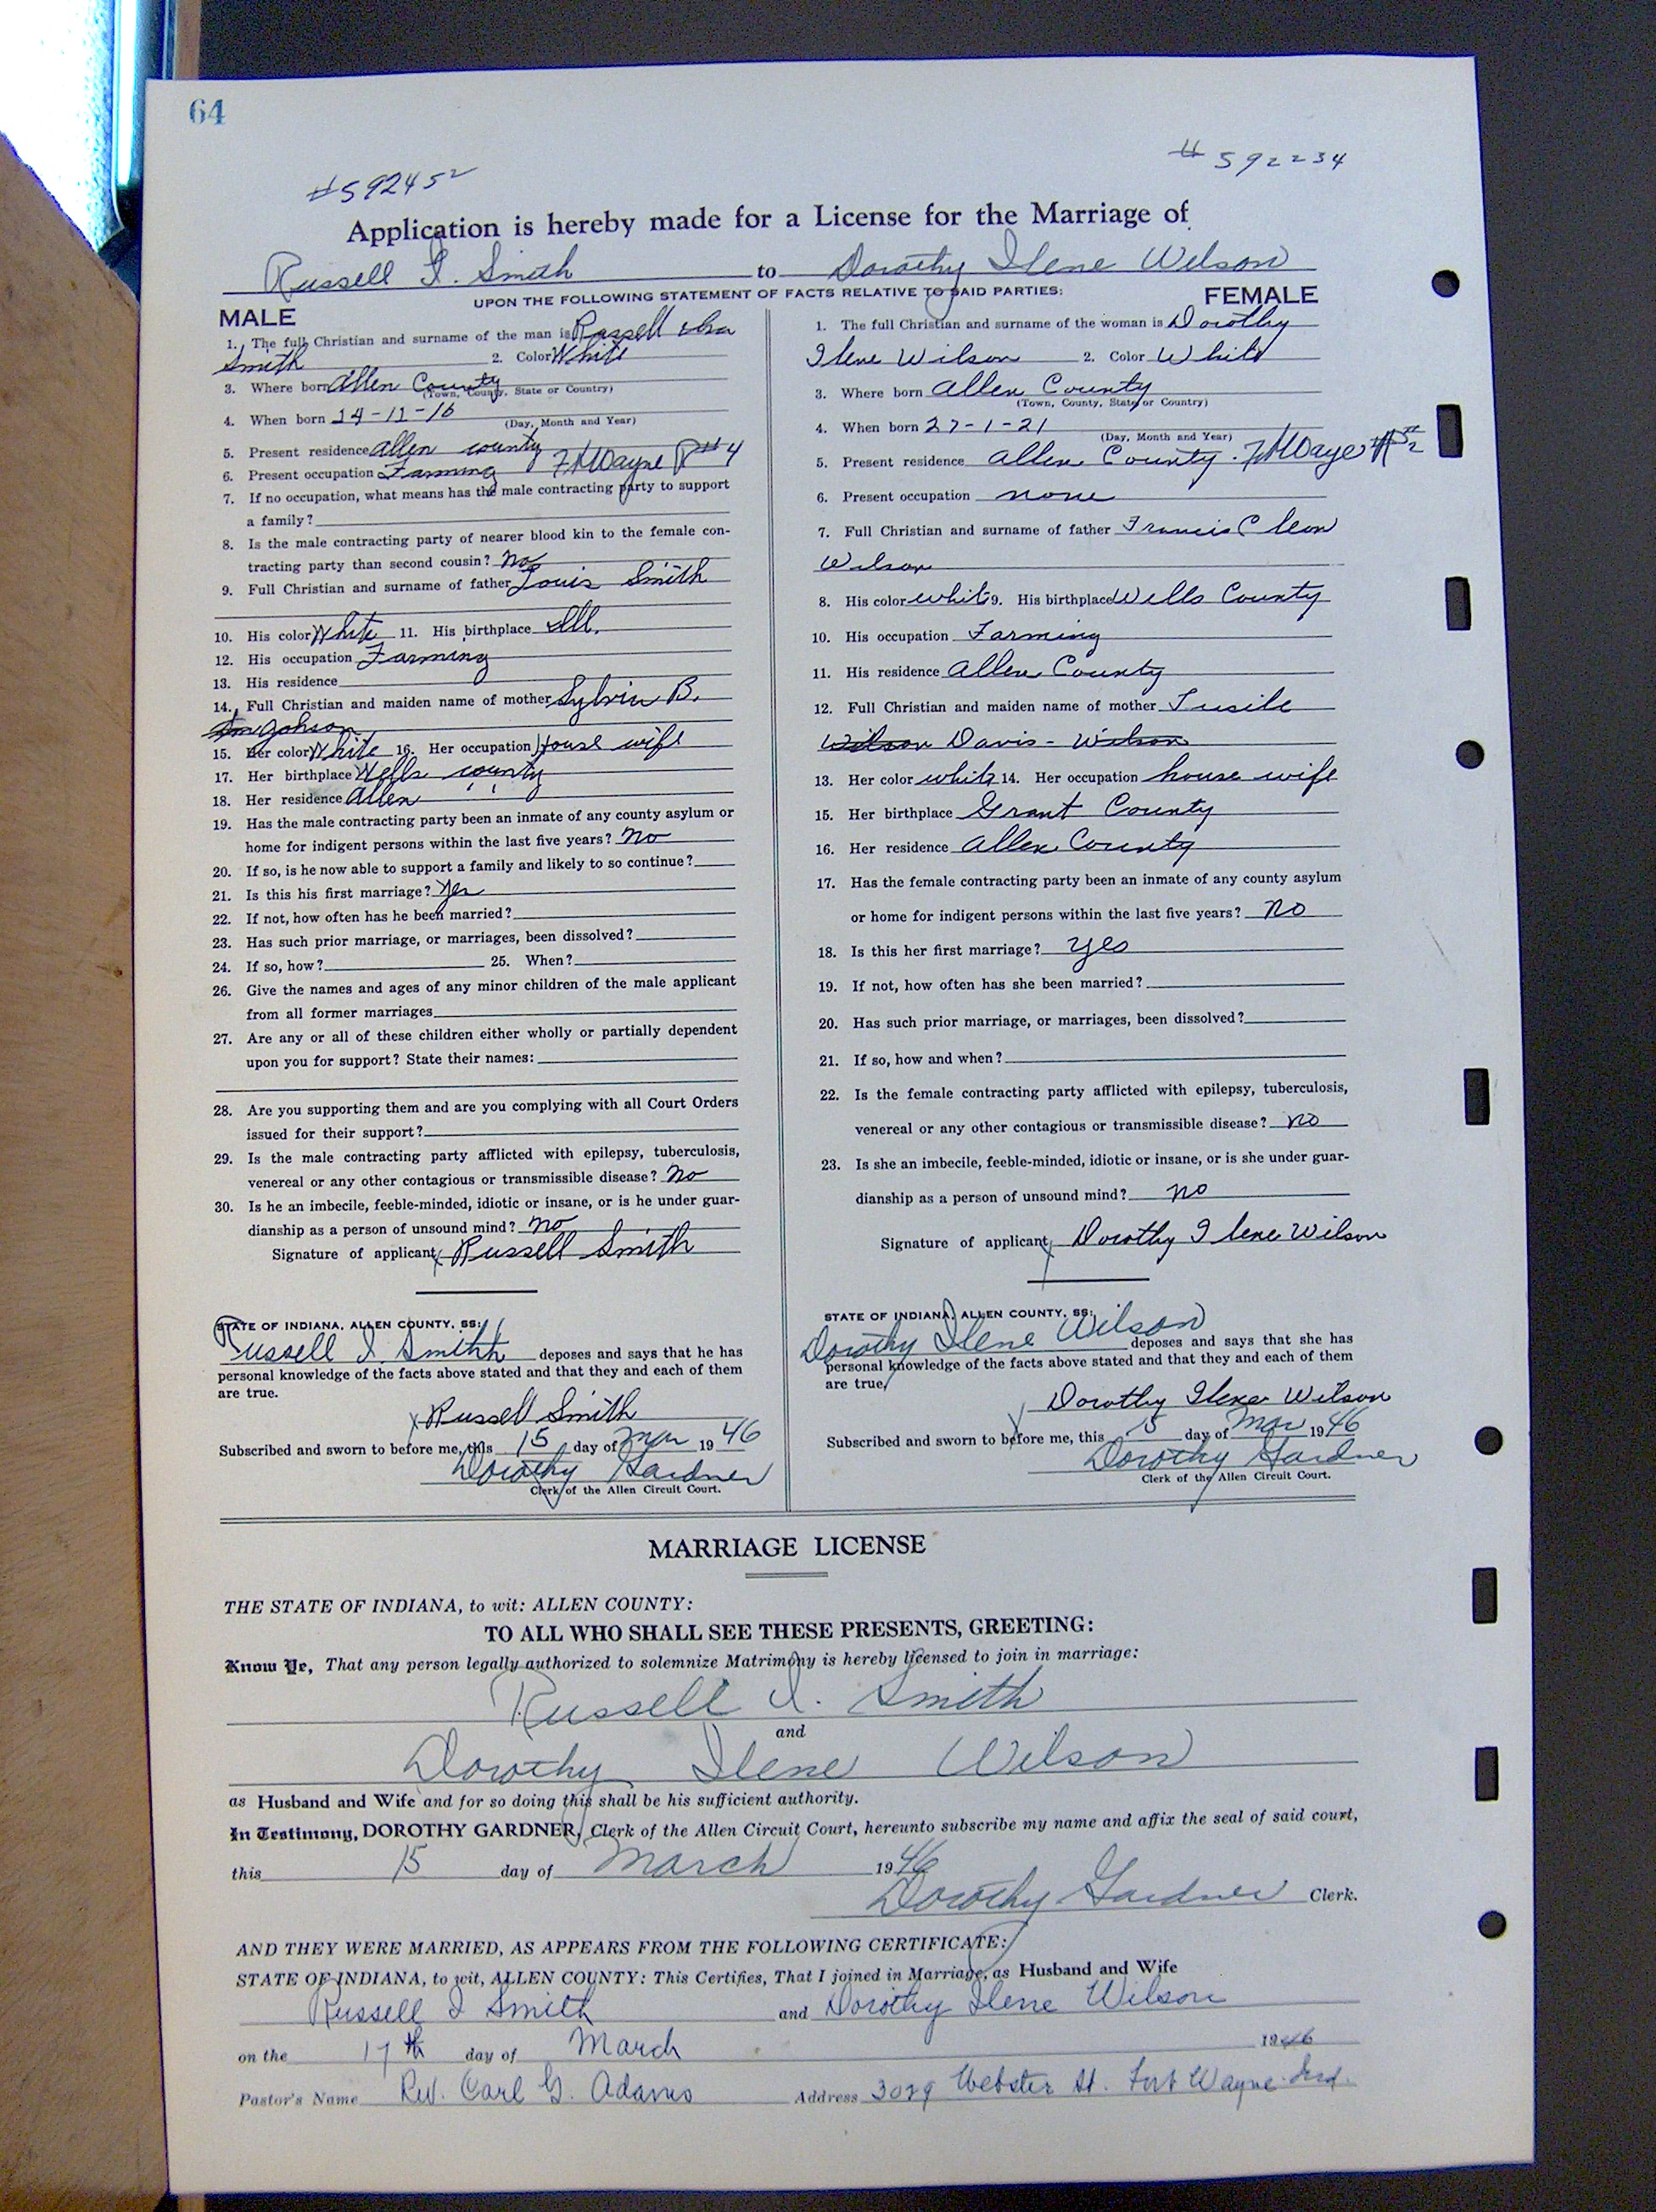 64
#592452
#592234
Application is hereby made for a License for the Marriage of
Russell I. Smith to Dorothy Ilene Wilson
UPON THE FOLLOWING STATEMENT OF FACTS RELATIVE TO SAID PARTIES:
MALE
1. The full Christian and surname of the man is Russell Ira
Smith 2. Color White
3. Where born Allen County
(Town, County, State or Country)
4. When born 14-11-16
(Day, Month and Year)
5. Present residence Allen county
6. Present occupation Farming Ft Wayne R#4
7. If no occupation, what means has the male contracting party to support
a family?
8. Is the male contracting party of nearer blood kin to the female con-
tracting party than second cousin? No
9. Full Christian and surname of father Louis Smith
10. His color White 11. His birthplace Ill.
12. His occupation Farming
13. His residence
14. Full Christian and maiden name of mother Sylvia B.
Johson
15. Her color White 16. Her occupation House wife
17. Her birthplace Wells county
18. Her residence Allen " "
19. Has the male contracting party been an inmate of any county asylum or
home for indigent persons within the last five years? No
20. If so, is he now able to support a family and likely to so continue?
21. Is this his first marriage? Yes
22. If not, how often has he been married?
23. Has such prior marriage, or marriages, been dissolved?
24. If so, how? 25. When?
26. Give the names and ages of any minor children of the male applicant
from all former marriages
27. Are any or all of these children either wholly or partially dependent
upon you for support? State their names:
28. Are you supporting them and are you complying with all Court Orders
issued for their support?
29. Is the male contracting party afflicted with epilepsy, tuberculosis,
venereal or any other contagious or transmissible disease? No
30. Is he an imbecile, feeble-minded, idiotic or insane, or is he under guar-
dianship as a person of unsound mind? No
Signature of applicant x Russell Smith
STATE OF INDIANA, ALLEN COUNTY, SS:
Russell I. Smith deposes and says that he has
personal knowledge of the facts above stated and that they and each of them
are true.
x Russell Smith
Subscribed and sworn to before me, this 15 day of Mar 1946
Dorothy Gardner
Clerk of the Allen Circuit Court.
FEMALE
1. The full Christian and surname of the woman is Dorothy
Ilene Wilson 2. Color White
3. Where born Allen County
(Town, County, State or Country)
4. When born 27-1-21
(Day, Month and Year)
5. Present residence Allen County. Ft Wayne
6. Present occupation none
7. Full Christian and surname of father Francis Cleon
Wilson
8. His color white 9. His birthplace Wells County
10. His occupation Farming
11. His residence Allen County
12. Full Christian and maiden name of mother Lusile
Wilson Davis - Wilson
13. Her color white 14. Her occupation house wife
15. Her birthplace Grant County
16. Her residence Allen County
17. Has the female contracting party been an inmate of any county asylum
or home for indigent persons within the last five years? No
18. Is this her first marriage? Yes
19. If not, how often has she been married?
20. Has such prior marriage, or marriages, been dissolved?
21. If so, how and when?
22. Is the female contracting party afflicted with epilepsy, tuberculosis,
venereal or any other contagious or transmissible disease? No
23. Is she an imbecile, feeble-minded, idiotic or insane, or is she under guar-
dianship as a person of unsound mind? No
Signature of applicant x Dorothy Ilene Wilson
STATE OF INDIANA, ALLEN COUNTY, SS:
Dorothy Ilene Wilson deposes and says that she has
personal knowledge of the facts above stated and that they and each of them
are true.
x Dorothy Ilene Wilson
Subscribed and sworn to before me, this 15 day of Mar 1946
Dorothy Gardner
Clerk of the Allen Circuit Court.
MARRIAGE LICENSE
THE STATE OF INDIANA, to wit: ALLEN COUNTY:
TO ALL WHO SHALL SEE THESE PRESENTS, GREETING:
Know Ye, That any person legally authorized to solemnize Matrimony is hereby licensed to join in marriage:
Russell I. Smith
and
Dorothy Ilene Wilson
as Husband and Wife and for so doing this shall be his sufficient authority.
In Testimony, DOROTHY GARDNER, Clerk of the Allen Circuit Court, hereunto subscribe my name and affix the seal of said court,
this 15 day of March 1946
Dorothy Gardner Clerk.
AND THEY WERE MARRIED, AS APPEARS FROM THE FOLLOWING CERTIFICATE:
STATE OF INDIANA, to wit, ALLEN COUNTY: This Certifies, That I joined in Marriage, as Husband and Wife
Russell I Smith and Dorothy Ilene Wilson
on the 17th day of March 1946
Pastor's Name Rev. Carl G. Adams Address 3029 Webster St. Fort Wayne Ind.